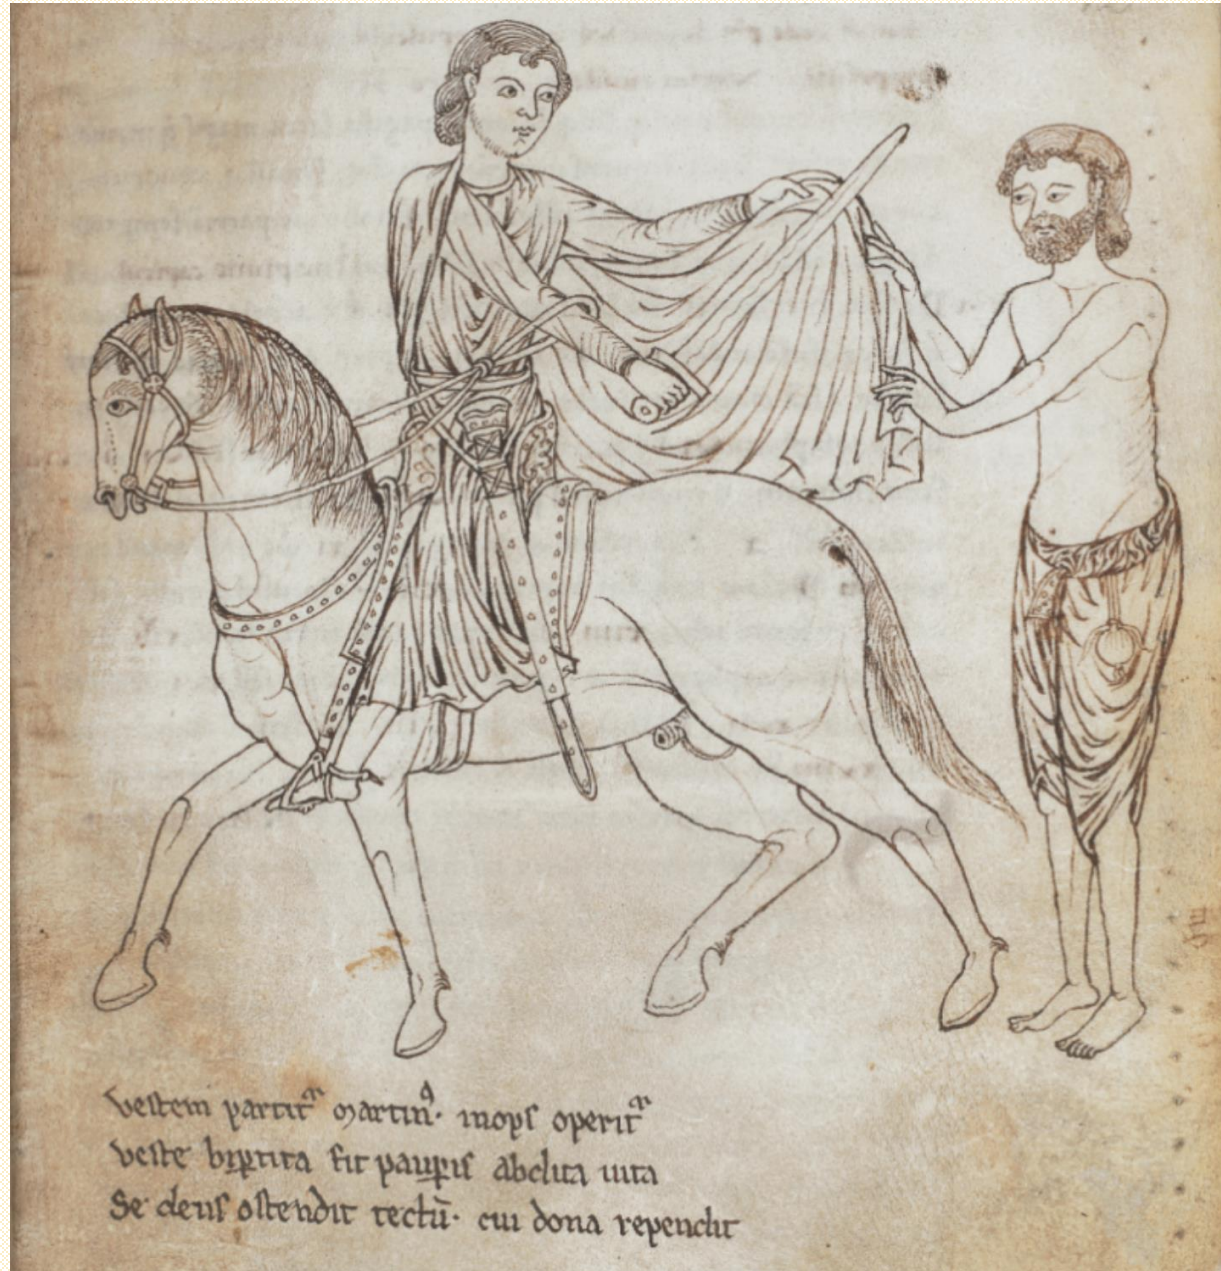 vestem partitᷣ martinꝰ· inops operitᷣ
veste biꝑtita fit pauꝑis abdita uita
Se deus ostendit tectū· cui dona rependit